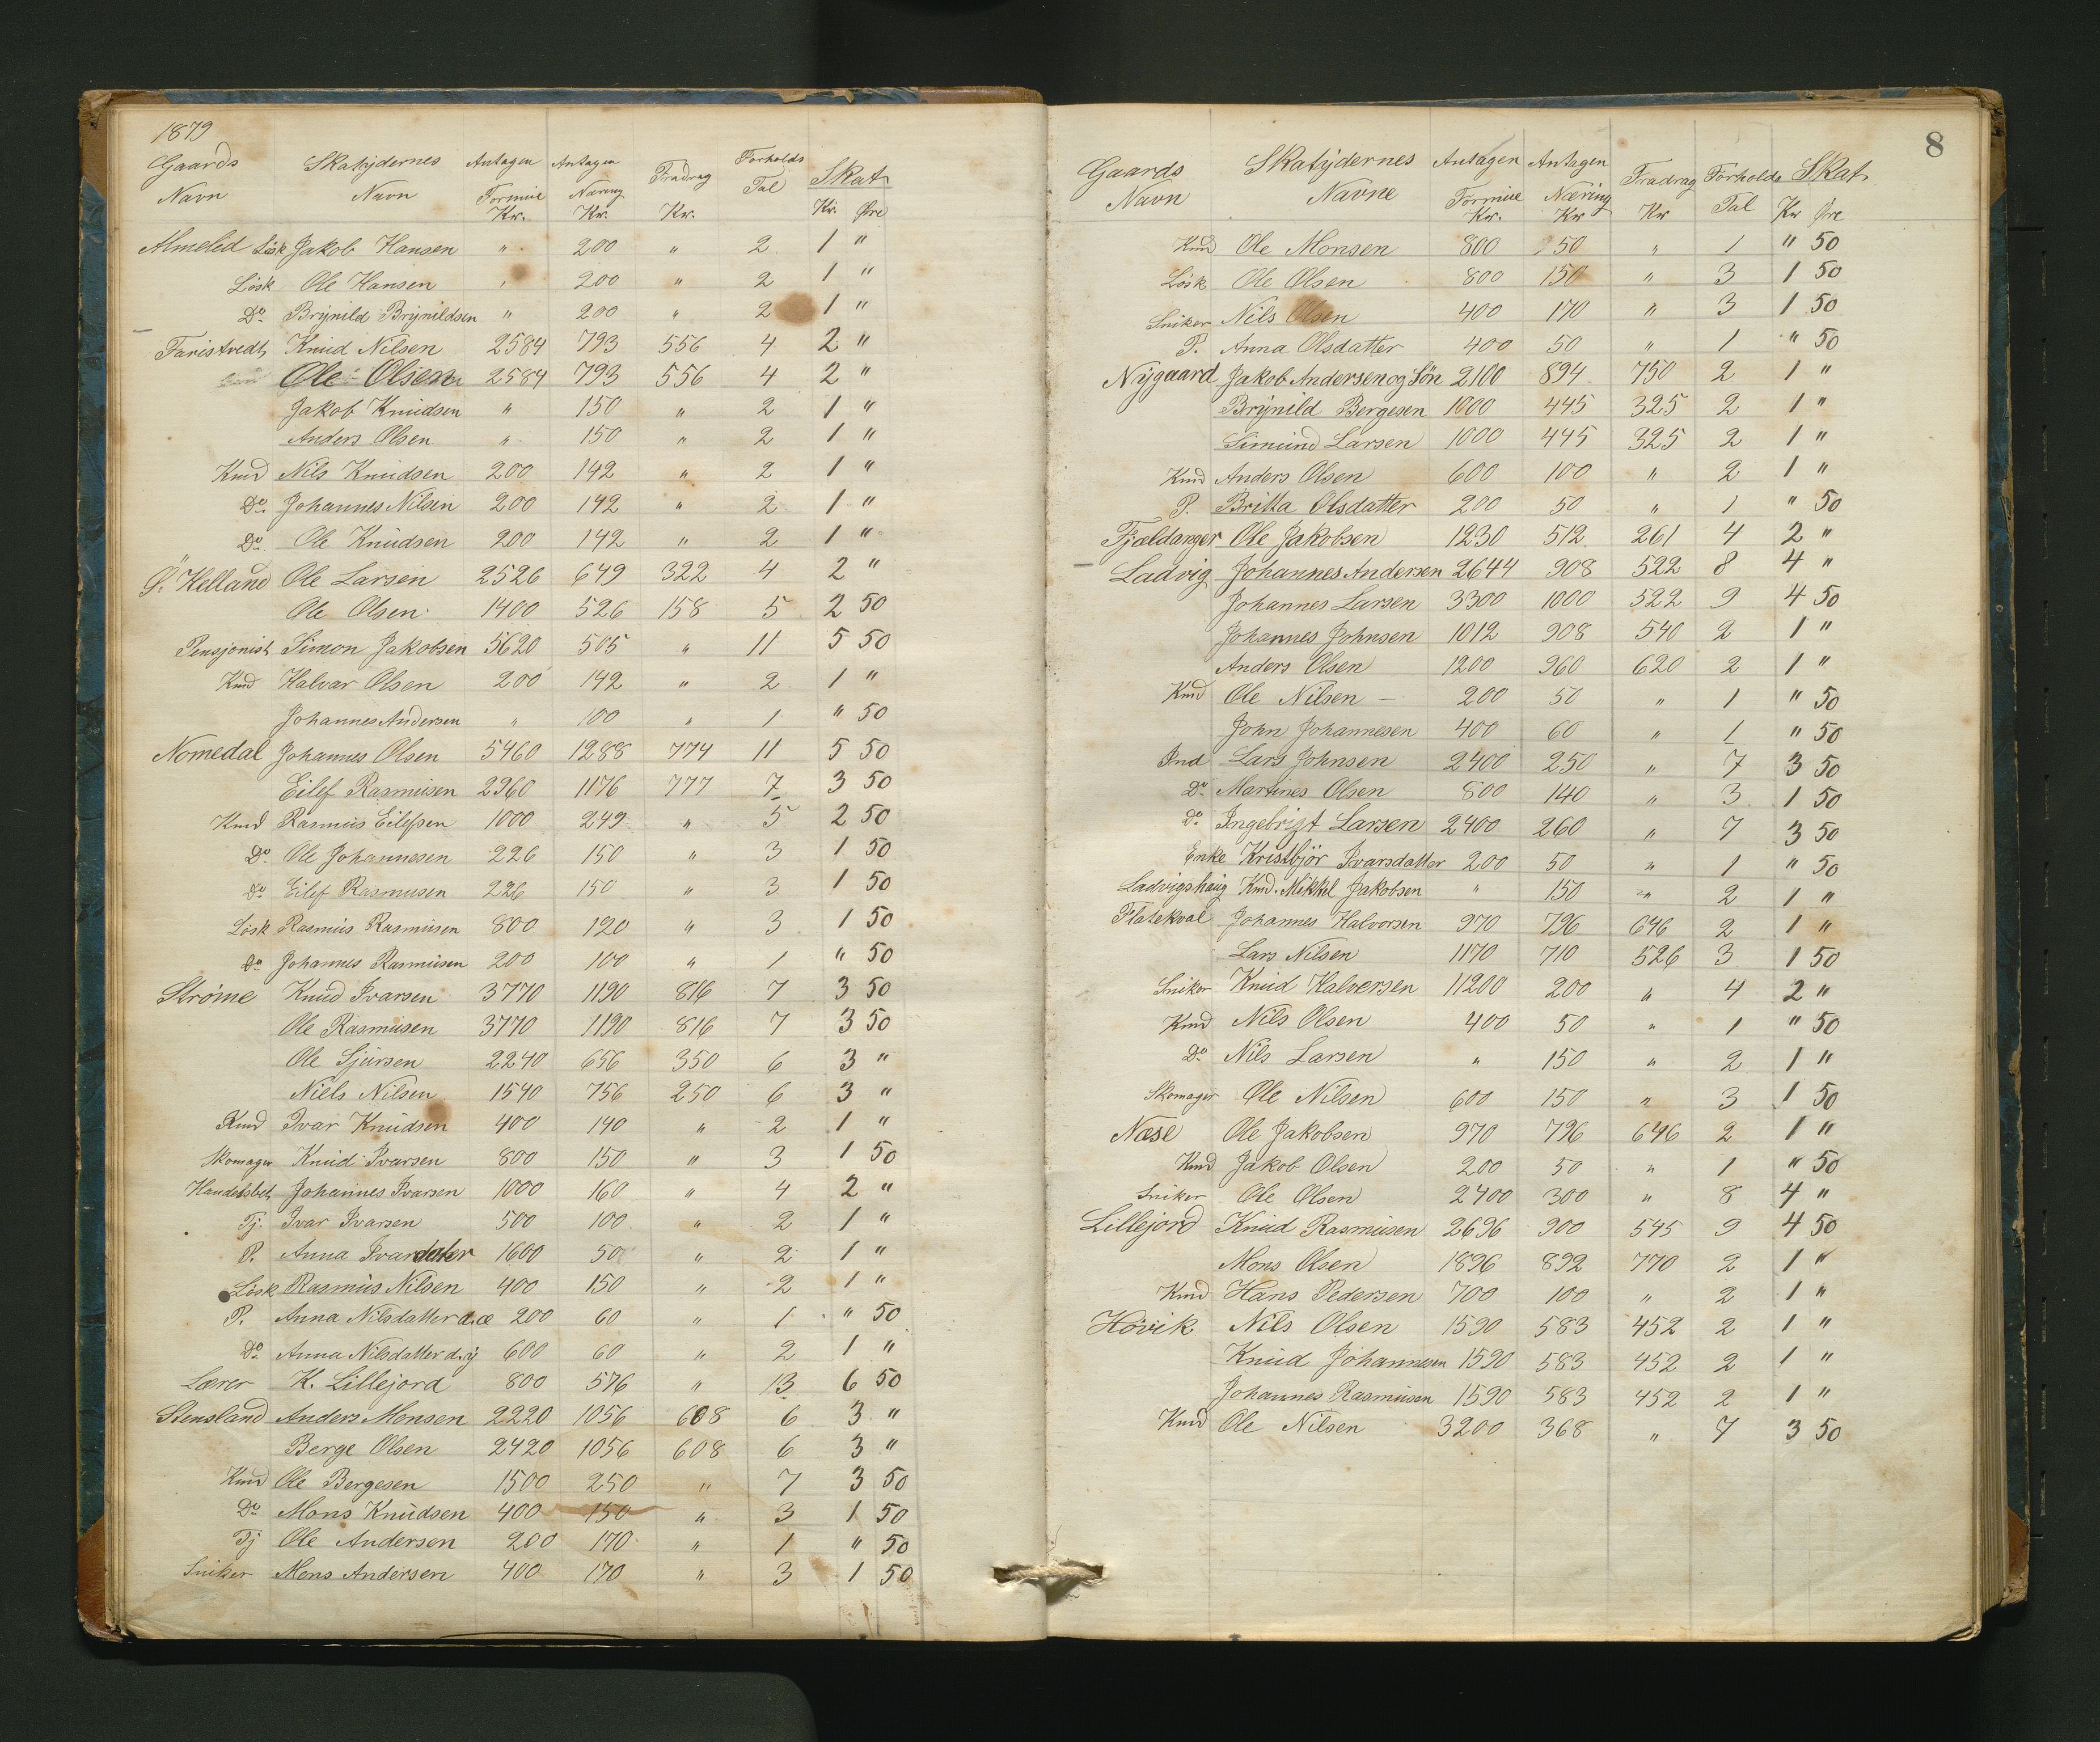 1879
Gaards Skatydernes Antagen Antagen Fradrag Forholds Skat
Navn Navn Formue Næring Tal
Kr. Kr. Kr. Kr. Øre
Almelid Løsk Jakob Hansen " 200 " 2 1 "
Løsk Ole Hansen " 200 " 2 1 "
Do Brÿnild Brÿnildsen " 200 " 2 1 "
Faristvedt Knud Nilsen 2584 793 556 4 2 "
Ole Olsen 2584 793 556 4 2 "
Jakob Knudsen " 150 " 2 1 "
Anders Olsen " 150 " 2 1 "
Kmd Nils Knudsen 200 142 " 2 1 "
Do Johannes Nilsen 200 142 " 2 1 "
Do Ole Knudsen 200 142 " 2 1 "
Ö. Helland Ole Larsen 2526 649 322 4 2 "
Ole Olsen 1400 526 158 5 2 50
Pensjonist Simon Jakobsen 5620 505 " 11 5 50
Kmd Halvar Olsen 200 142 " 2 1 "
Johannes Andersen " 100 " 1 " 50
Nomedal Johannes Olsen 5460 1288 774 11 5 50
Eilef Rasmusen 2960 1176 777 7 3 50
Kmd Rasmus Eilefsen 1000 249 " 5 2 50
Do Ole Johannesen 226 150 " 3 1 50
Do Eilef Rasmusen 226 150 " 3 1 50
Løsk Rasmus Rasmusen 800 120 " 3 1 50
Do Johannes Rasmusen 200 100 " 1 " 50
Strøme Knud Ivarsen 3770 1190 816 7 3 50
Ole Rasmusen 3770 1190 816 7 3 50
Ole Sjursen 2240 656 350 6 3 "
Niels Nilsen 1540 756 250 6 3 "
Kmd Ivar Knudsen 400 140 " 2 1 "
Skomager Knud Ivarsen 800 150 " 3 1 50
Handelsbet Johannes Ivarsen 1000 160 " 4 2 "
Tj. Ivar Ivarsen 500 100 " 2 1 "
P. Anna Ivarsdatter 1600 50 " 2 1 "
Løsk Rasmus Nilsen 400 150 " 2 1 "
P. Anna Nilsdatter d.æ 200 60 " 1 " 50
Do Anna Nilsdatter d.ÿ 600 60 " 2 1 "
Lærer K. Lillejord 800 576 " 13 6 50
Stensland Anders Monsen 2220 1056 608 6 3 "
Berge Olsen 2420 1056 608 6 3 "
Kmd Ole Bergesen 1500 250 " 7 3 50
Do Mons Knudsen 400 150 " 3 1 50
Tj Ole Andersen 200 170 " 1 " 50
Sniker Mons Andersen 400 170 " 3 1 50
8
Gaards Skatÿdernes Antagen Antagen Fradrag Forholds Skat
Navn Navne Formue Næring Tal
Kr. Kr Kr Kr Øre
Kmd Ole Monsen 800 50 " 1 " 50
Løsk Ole Olsen 800 150 " 3 1 50
Sniker Nils Olsen 400 170 " 3 1 50
P. Anna Olsdatter 400 50 " 1 " 50
Nÿgaard Jakob Andersen og Søn 2100 894 750 2 1 "
Brÿnild Bergesen 1000 445 325 2 1 "
Simund Larsen 1000 445 325 2 1 "
Kmd Anders Olsen 600 100 " 2 1 "
P. Britta Olsdatter 200 50 " 1 " 50
Fjældanger Ole Jakobsen 1230 512 261 4 2 "
Ladvig Johannes Andersen 2644 908 522 8 4 "
Johannes Larsen 3300 1000 522 9 4 50
Johannes Johnsen 1012 908 540 2 1 "
Anders Olsen 1200 960 620 2 1 "
Kmd Ole Nilsen – 200 50 " 1 " 50
John Johannesen 400 60 " 1 " 50
Ind Lars Johnsen 2400 250 " 7 3 50
Do Martines Olsen 800 140 " 3 1 50
do Ingebrigt Larsen 2400 260 " 7 3 50
Enke Kristbjör Ivarsdatter 200 50 " 1 " 50
Ladvigshaug Kmd. Mikkel Jakobsen " 150 " 2 1 "
Flatekval Johannes Halvorsen 970 796 646 2 1 "
Lars Nilsen 1170 710 526 3 1 50
Sniker Knud Halversen 11200 200 " 4 2 "
Kmd Nils Olsen 400 50 " 1 " 50
Do Nils Larsen " 150 " 2 1 "
Skomager Ole Nilsen 600 150 " 3 1 50
Næse Ole Jakobsen 970 796 646 2 1 "
Kmd Jakob Olsen 200 50 " 1 " 50
Sniker Ole Olsen 2400 300 " 8 4 "
Lillejord Knud Rasmusen 2696 900 545 9 4 50
Mons Olsen 1896 892 770 2 1 "
Kmd Hans Pedersen 700 100 " 2 1 "
Høvik Nils Olsen 1590 583 452 2 1 "
Knud Johannesen 1590 583 452 2 1 "
Johannes Rasmusen 1590 583 452 2 1 "
Kmd Ole Nilsen 3200 368 " 7 3 50